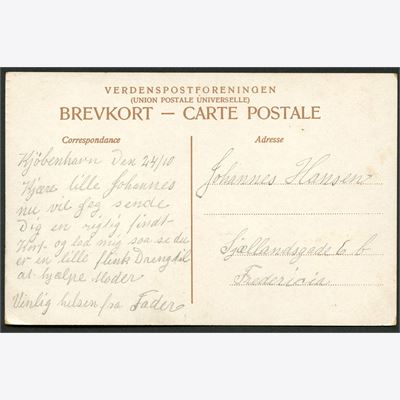 VERDENSPOSTFORENINGEN
(UNION POSTALE UNIVERSELLE)
BREVKORT — CARTE POSTALE
Correspondance
Kjøbenhavn Den 24/10
Kjære lille Johannes
nu vil Jeg sende
Dig en rigtig findt
Kort og lad mig saa se du
er en lille flink Dreng til
at hjælpe Moder
Venlig hilsen fra Fader
Adresse
Johannes Hansen
Sjællandsgade 6
Fredericia